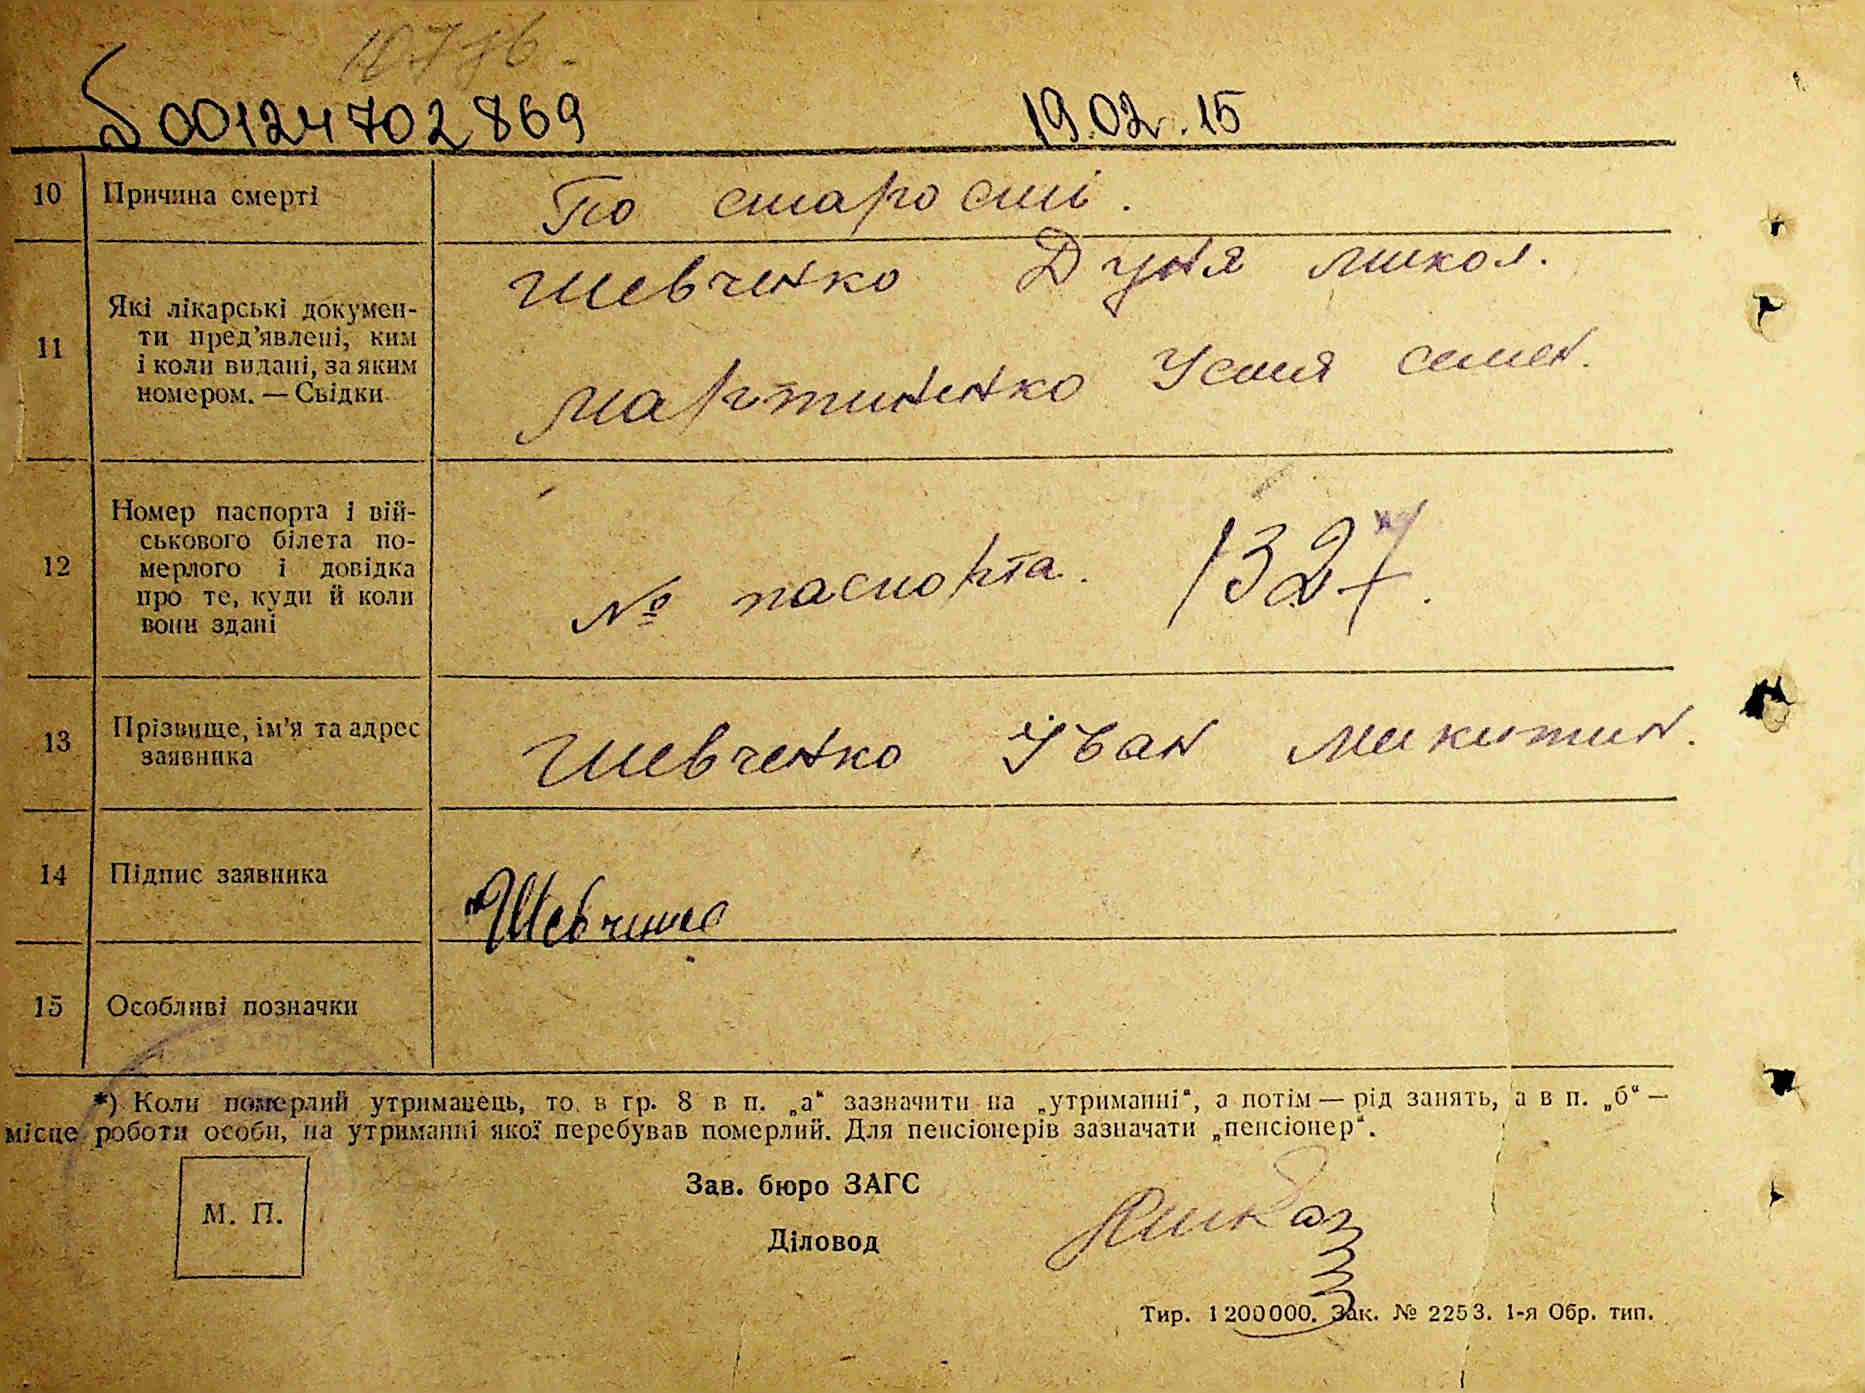 00124702869 19.02.15
10 Причина смерті По старості.
11 Які лікарські докумен-
ти пред’явлені, ким
і коли видані, за яким
номером. — Свідки
Шевченко Дуня микол.
мартиненко Устя семен.
12 Номер паспорта і вій-
ськового білета по-
мерлого і довідка
про те, куди й коли
вони здані
№ паспорта. 1327.
13 Прізвище, ім’я та адрес
заявника
Шевченко Іван микитин.
14 Підпис заявника Шевченко
15 Особливі позначки
*) Коли померлий утриманець, то в гр. 8 в п. „а“ зазначити на „утриманні“, а потім — рід занять, а в п. „б“ —
місце роботи особи, на утриманні якої перебував померлий. Для пенсіонерів зазначати „пенсіонер“.
М. П.
Зав. бюро ЗАГС
Діловод
Тир. 1200000. Зак. № 2253. 1-я Обр. тип.